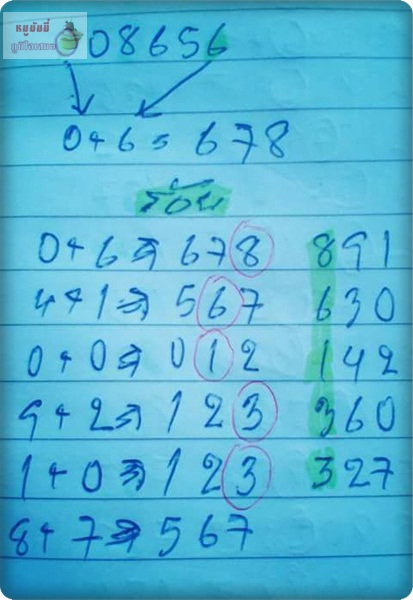 หมูมัมมี่
008656
0+6=678
ร้อย
0+6⇒678 891
4+1⇒567 630
0+0⇒012 142
9+2⇒123 360
1+0⇒123 327
8+7⇒567